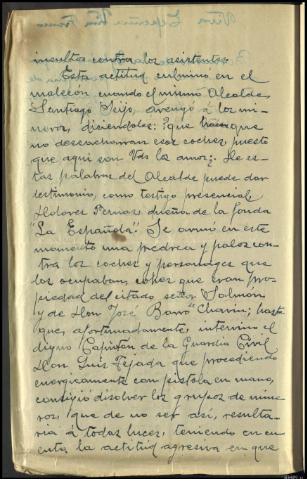 insultos contra los asistentes.
Esta actitud culmino en el
malecón cuando el mismo Alcalde,
Santiago Seijo, arengó á los mi-
neros, diciendoles: ¡que
no desenchovaran esos coches, puesto
que aquí son Vds los amos;. De es-
tas palabras del Alcalde puede dar
testimonio, como testigo presencial
Dolores Pernas dueña de la fonda
"La Española". Se armó en este
momento una pedrea y palos con-
tra los coches y personajes que
los ocupaban, coches que eran pro-
piedad del citado señor Salmon
y de Don José Barro "Chavin; hasta
que, afortunadamente, intervino el
digno Capitán de la Guardia Civil
Don Luis Tejada que procediendo
energicamente con pistola en mano,
consiguió disolver los grupos de mine-
ros, que de no ser así, resulta-
ria á todas luces, teniendo en cu-
enta la actitud agresiva en que